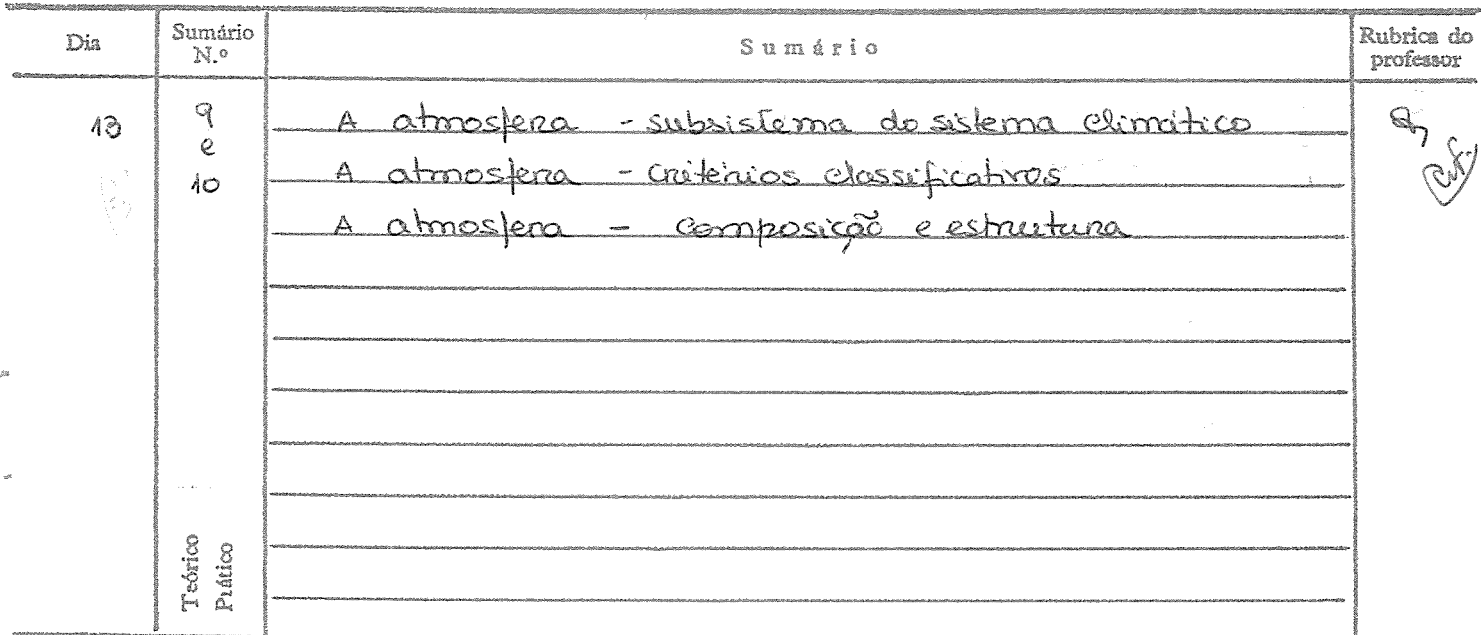 Dia Sumário N.º Sumário Rubrica do professor
13 9 e 10 A atmosfera - subsistema do sistema climático
A atmosfera - critérios classificativos
A atmosfera - composição e estrutura
Teórico
Prático